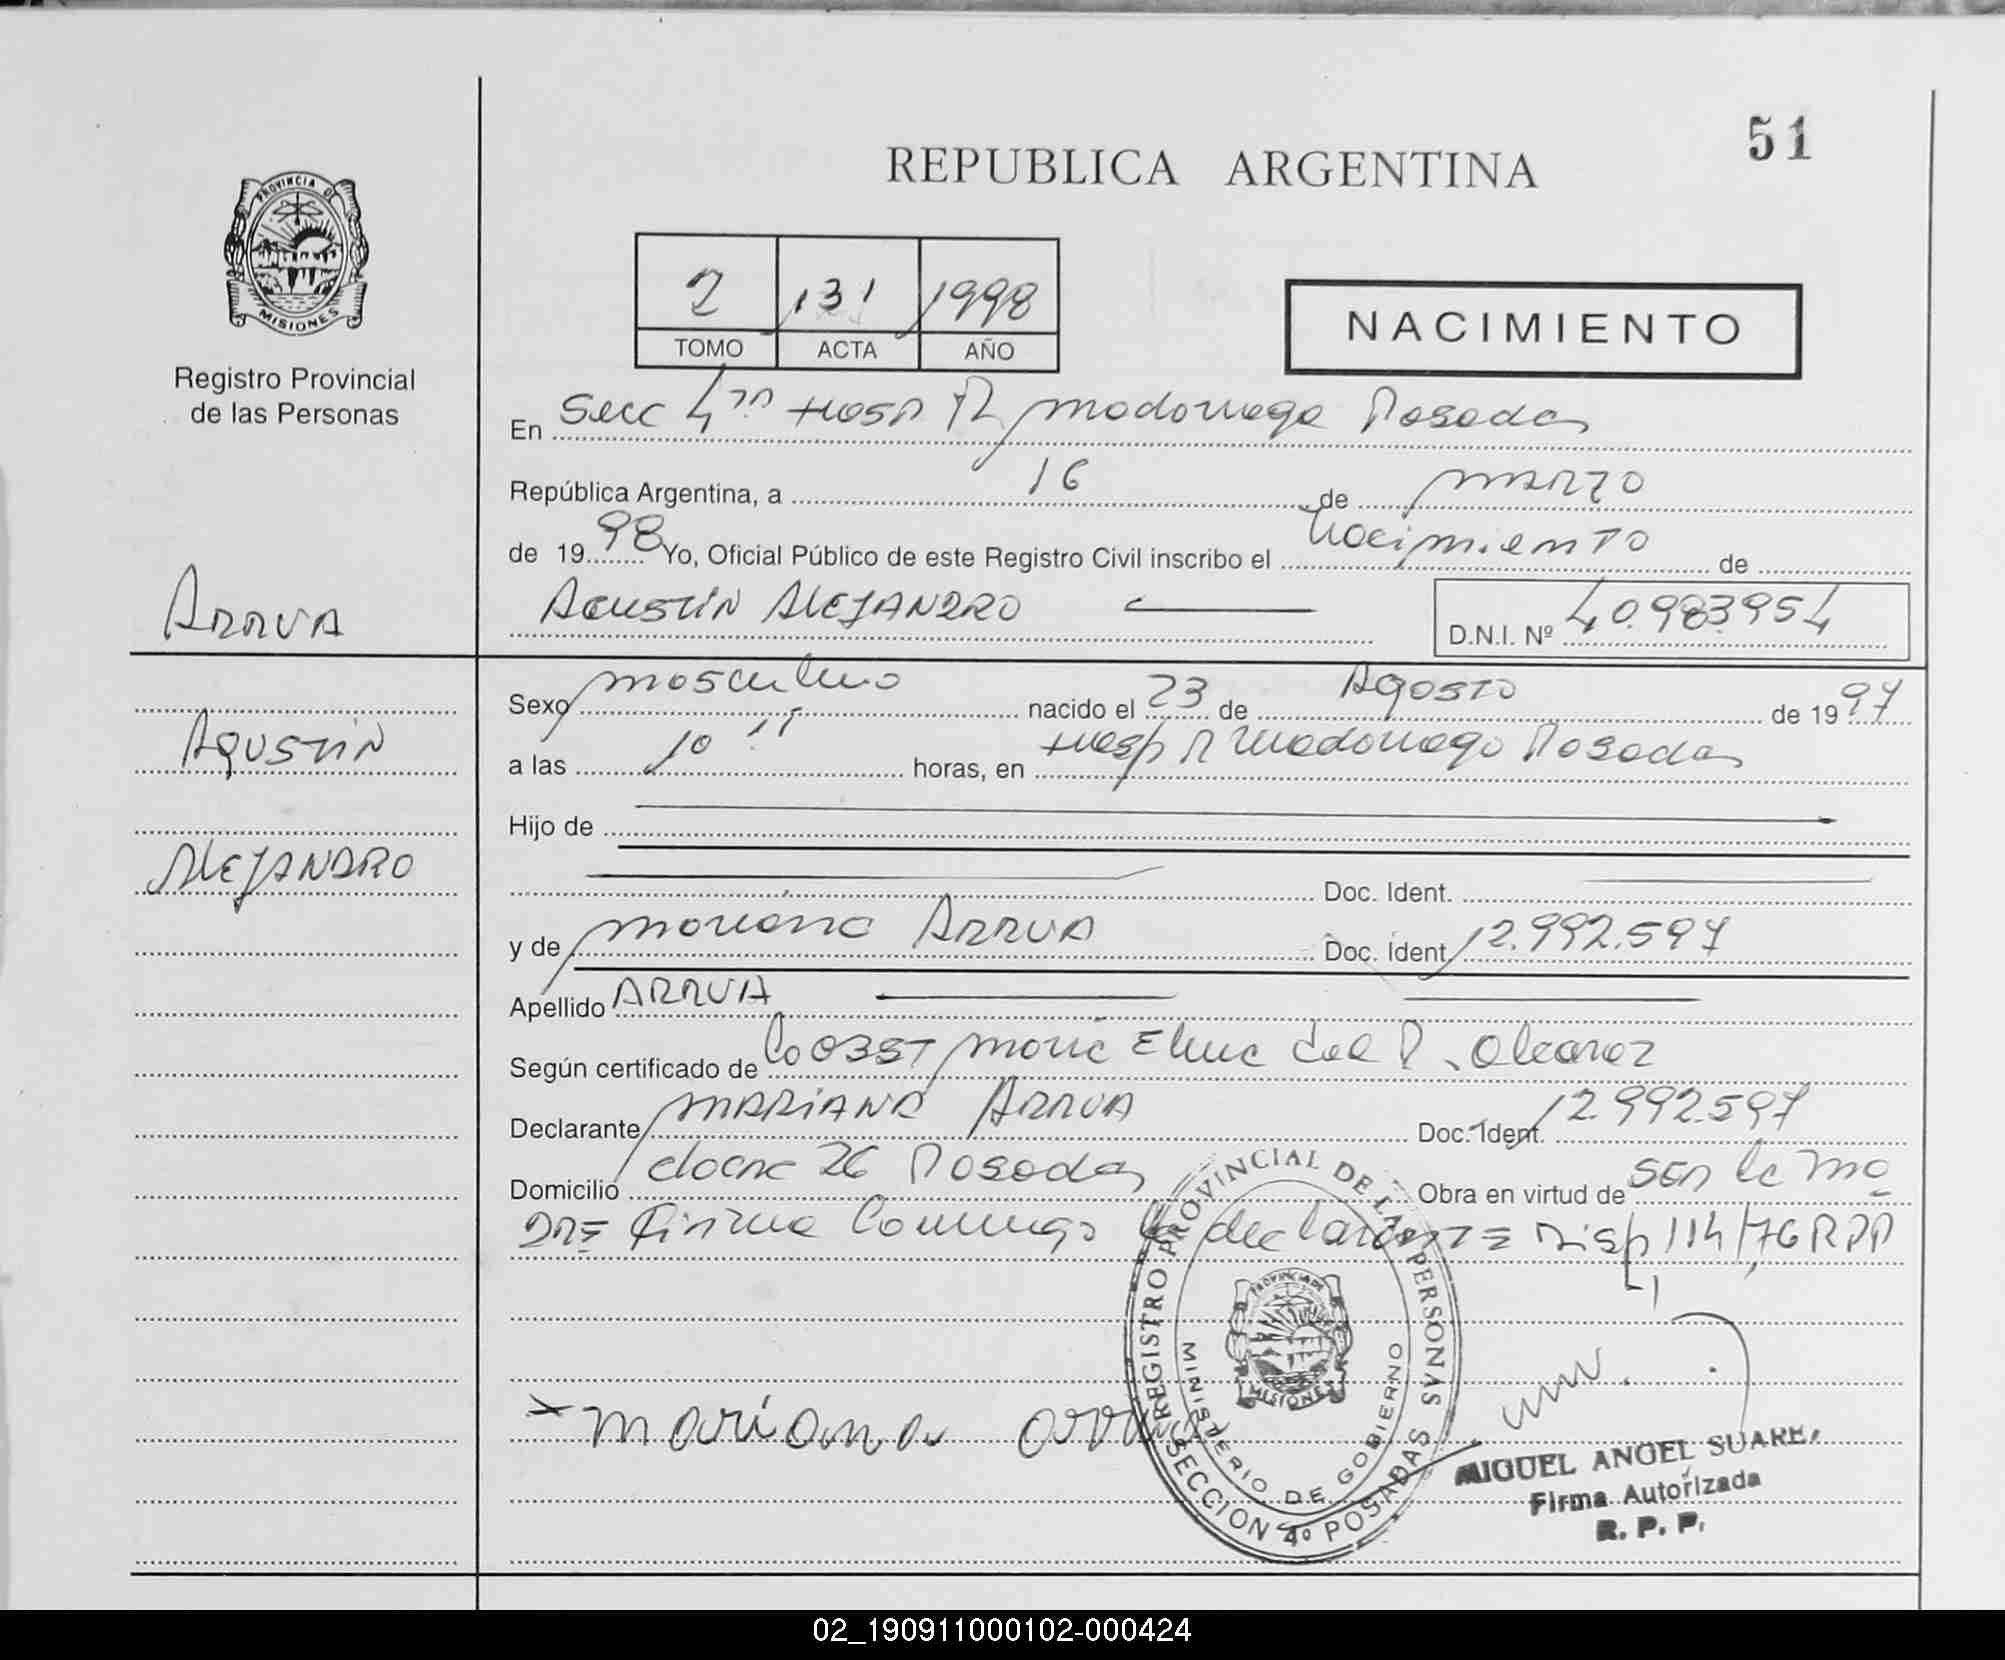 51
REPUBLICA ARGENTINA
PROVINCIA DE
MISIONES
Registro Provincial
de las Personas
2 131 1998
TOMO ACTA AÑO
NACIMIENTO
En Secc 4ta Hosp R Madariaga Posadas
República Argentina, a 16 de marzo
de 1998 Yo, Oficial Público de este Registro Civil inscribo el Nacimiento de
ARRUA
AGUSTIN ALEJANDRO D.N.I. Nº 40.983.954
Sexo masculino nacido el 23 de AGOSTO de 1997
AGUSTIN
a las 10 horas, en Hosp R Madariaga Posadas
Hijo de
ALEJANDRO
Doc. Ident.
y de Mariana ARRUA Doc. Ident. 12.992.597
Apellido ARRUA
Según certificado de La OBST Maria Elena del P. Alvarez
Declarante MARIANA ARRUA Doc. Ident. 12.992.597
Domicilio 26 Posadas Obra en virtud de SER la ma
DRE Firma Conmigo la declarante Disp 114/76 RPP
REGISTRO PROVINCIAL DE LAS PERSONAS
MINISTERIO DE GOBIERNO
SECCION 4º POSADAS
MISIONES
x mariana arrua
MIGUEL ANGEL SUARE
Firma Autorizada
R. P. P.
02_190911000102-000424